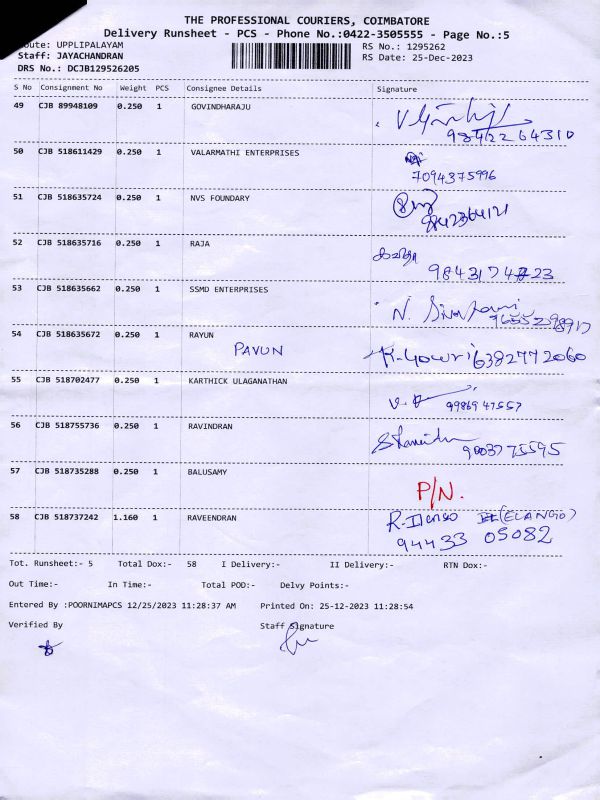 THE PROFESSIONAL COURIERS, COIMBATORE
Delivery Runsheet - PCS - Phone No.:0422-3505555 - Page No.:5
Route: UPPLIPALAYAM RS No.: 1295262
Staff: JAYACHANDRAN RS Date: 25-Dec-2023
DRS No.: DCJB129526205
S No Consignment No Weight PCS Consignee Details Signature
49 CJB 89948109 0.250 1 GOVINDHARAJU
9842264310
50 CJB 518611429 0.250 1 VALARMATHI ENTERPRISES
7094375996
51 CJB 518635724 0.250 1 NVS FOUNDARY
9842364121
52 CJB 518635716 0.250 1 RAJA
53 CJB 518635662 0.250 1 SSMD ENTERPRISES
54 CJB 518635672 0.250 1 RAYUN
PAVUN K-Gowri 6382772060
55 CJB 518702477 0.250 1 KARTHICK ULAGANATHAN
9986947557
56 CJB 518755736 0.250 1 RAVINDRAN
9003775595
57 CJB 518735288 0.250 1 BALUSAMY
P/N.
58 CJB 518737242 1.160 1 RAVEENDRAN
94433 05082
Tot. Runsheet:- 5 Total Dox:- 58 I Delivery:- II Delivery:- RTN Dox:-
Out Time:- In Time:- Total POD:- Delvy Points:-
Entered By :POORNIMAPCS 12/25/2023 11:28:37 AM Printed On: 25-12-2023 11:28:54
Verified By Staff Signature